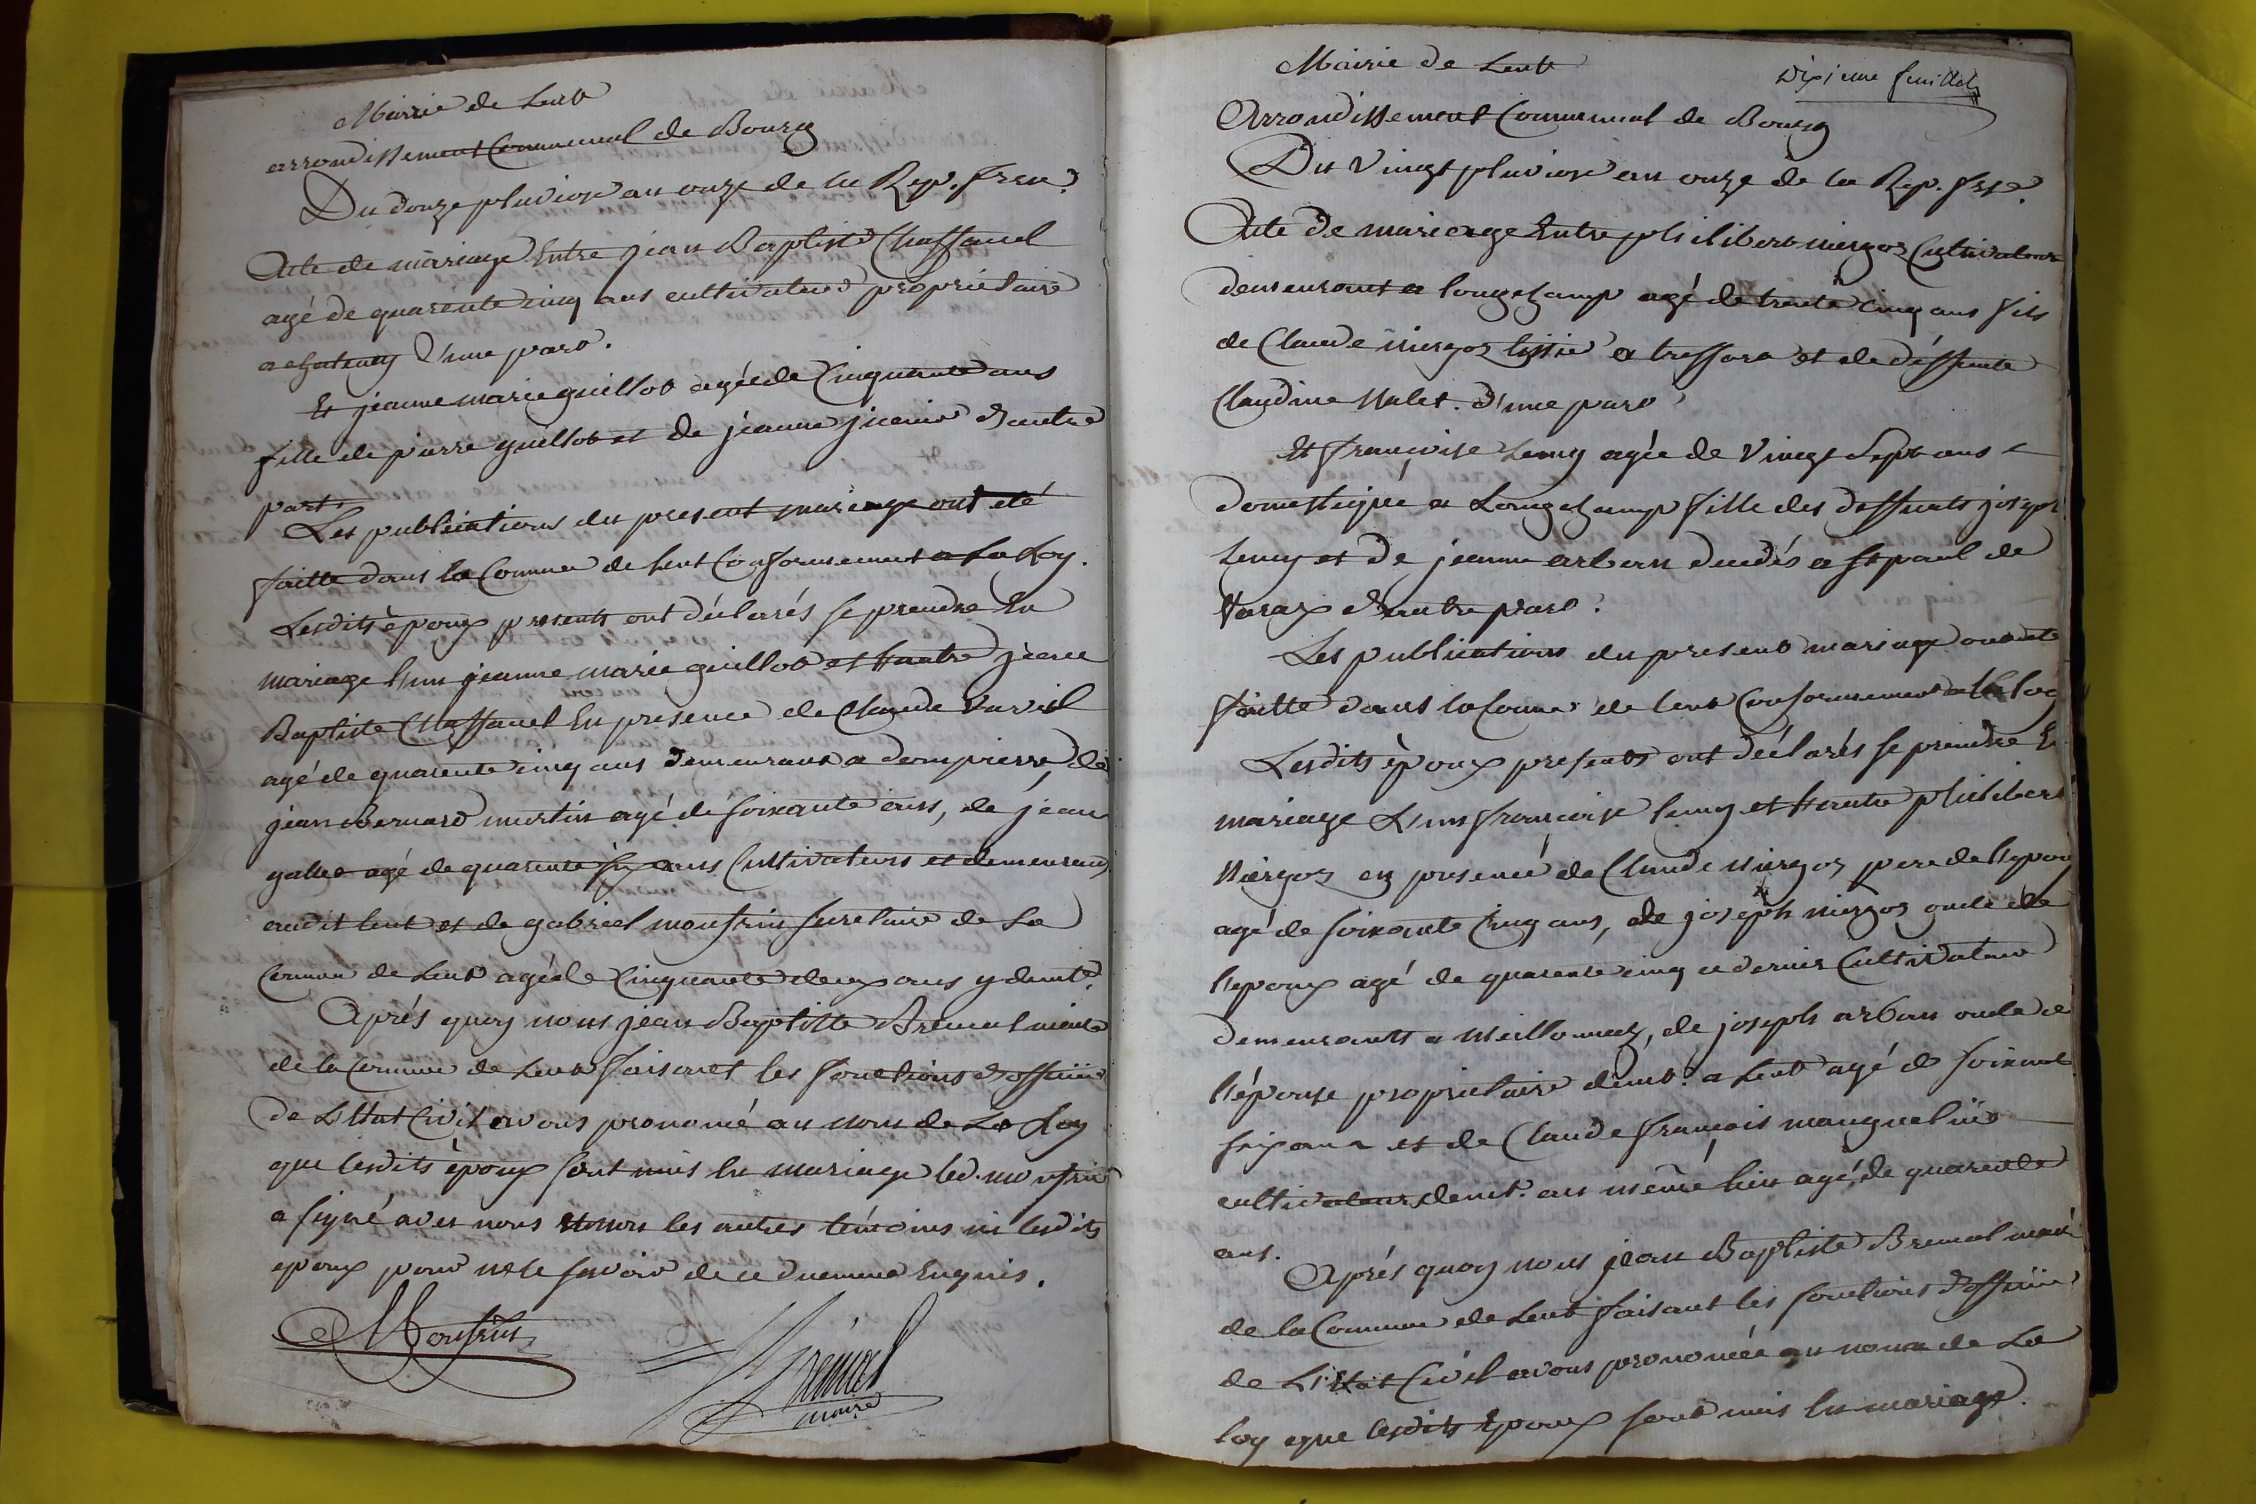 Mairie de Lent
arrondissement Communal de Bourg
Du douze pluviose an onze de la Rep. fran.
Acte de mariage Entre jean Baptiste Chaffanel
agé de quarente cinq ans cultivateur propriétaire
a Chatenay d'une part.
Et jeanne marie guillot agée de Cinquante ans
fille de pierre guillot et de jeanne d'autre
part.
Les publications du present mariage ont été
faitte dans la Comune de Lent Conformement a La Loy.
Lesdits époux presents ont déclarés se prendre En
mariage l'un jeanne marie guillot et l'autre jean
Baptiste Chaffanel En presence de Claude
agé de quarente cinq ans demeurant a dompierre, de
jean Bernard martin agé de soixante ans, de jean
agé de quarente six ans Cultivateurs et demeurant
audit lent et de gabriel monfrin secretaire de La
Comune de Lent agé de Cinquante deux ans y demt.
Aprés quoy nous jean Baptiste Brenal maire
de la Comune de Lent faisant les fonctions d'officier
de L'Etat Civil avons prononcé au nom de La Loy
que lesdits époux sont unis En mariage led. monfrin
a signé avec nous et non les autres temoins ni lesdits
epoux pour ne le savoir de ce duement Enquis.
Monfrin
Brenal
maire
Mairie de Lent
Dixieme feuillet
Arrondissement Communal de Bourg
Du Vingt pluviose an onze de la Rep. frse.
Acte de mariage Entre philibert niergoz Cultivateur
demeurant a longchamp agé de trente cinq ans fils
de Claude niergoz a tressora et de déffunte
Claudine Valet. d'une part
Et françoise Lemy agée de Vingt Sept ans
domestique a Longchamp fille des deffunts joseph
Lemy et de jeanne arban decedés a St paul de
Varax d'autre part.
Les publications du present mariage ont été
faitte dans la Comne. de lent Conformement a la loy
Lesdits époux presents ont déclarés se prendre En
mariage L'un françoise lemy et l'autre philibert
Niergoz en presence de Claude niergoz pere de l'epoux
agé de soixante Cinq ans, de joseph niergoz oncle de
l'epoux agé de quarente cinq ce dernier Cultivateur
demeurants a Meillonnaz, de joseph arban oncle de
l'épouse propriétaire demt. a Lent agé de soixante
six ans et de Claude françois manguelin
cultivateur demt. au même lieu agé de quarente
ans.
Aprés quoy nous jean Baptiste Brenal maire
de la Comune de Lent faisant les fonctions d'officier
de L'Etat Civil avons prononcé au nom de La
loy que lesdits Epoux sont unis En mariage.